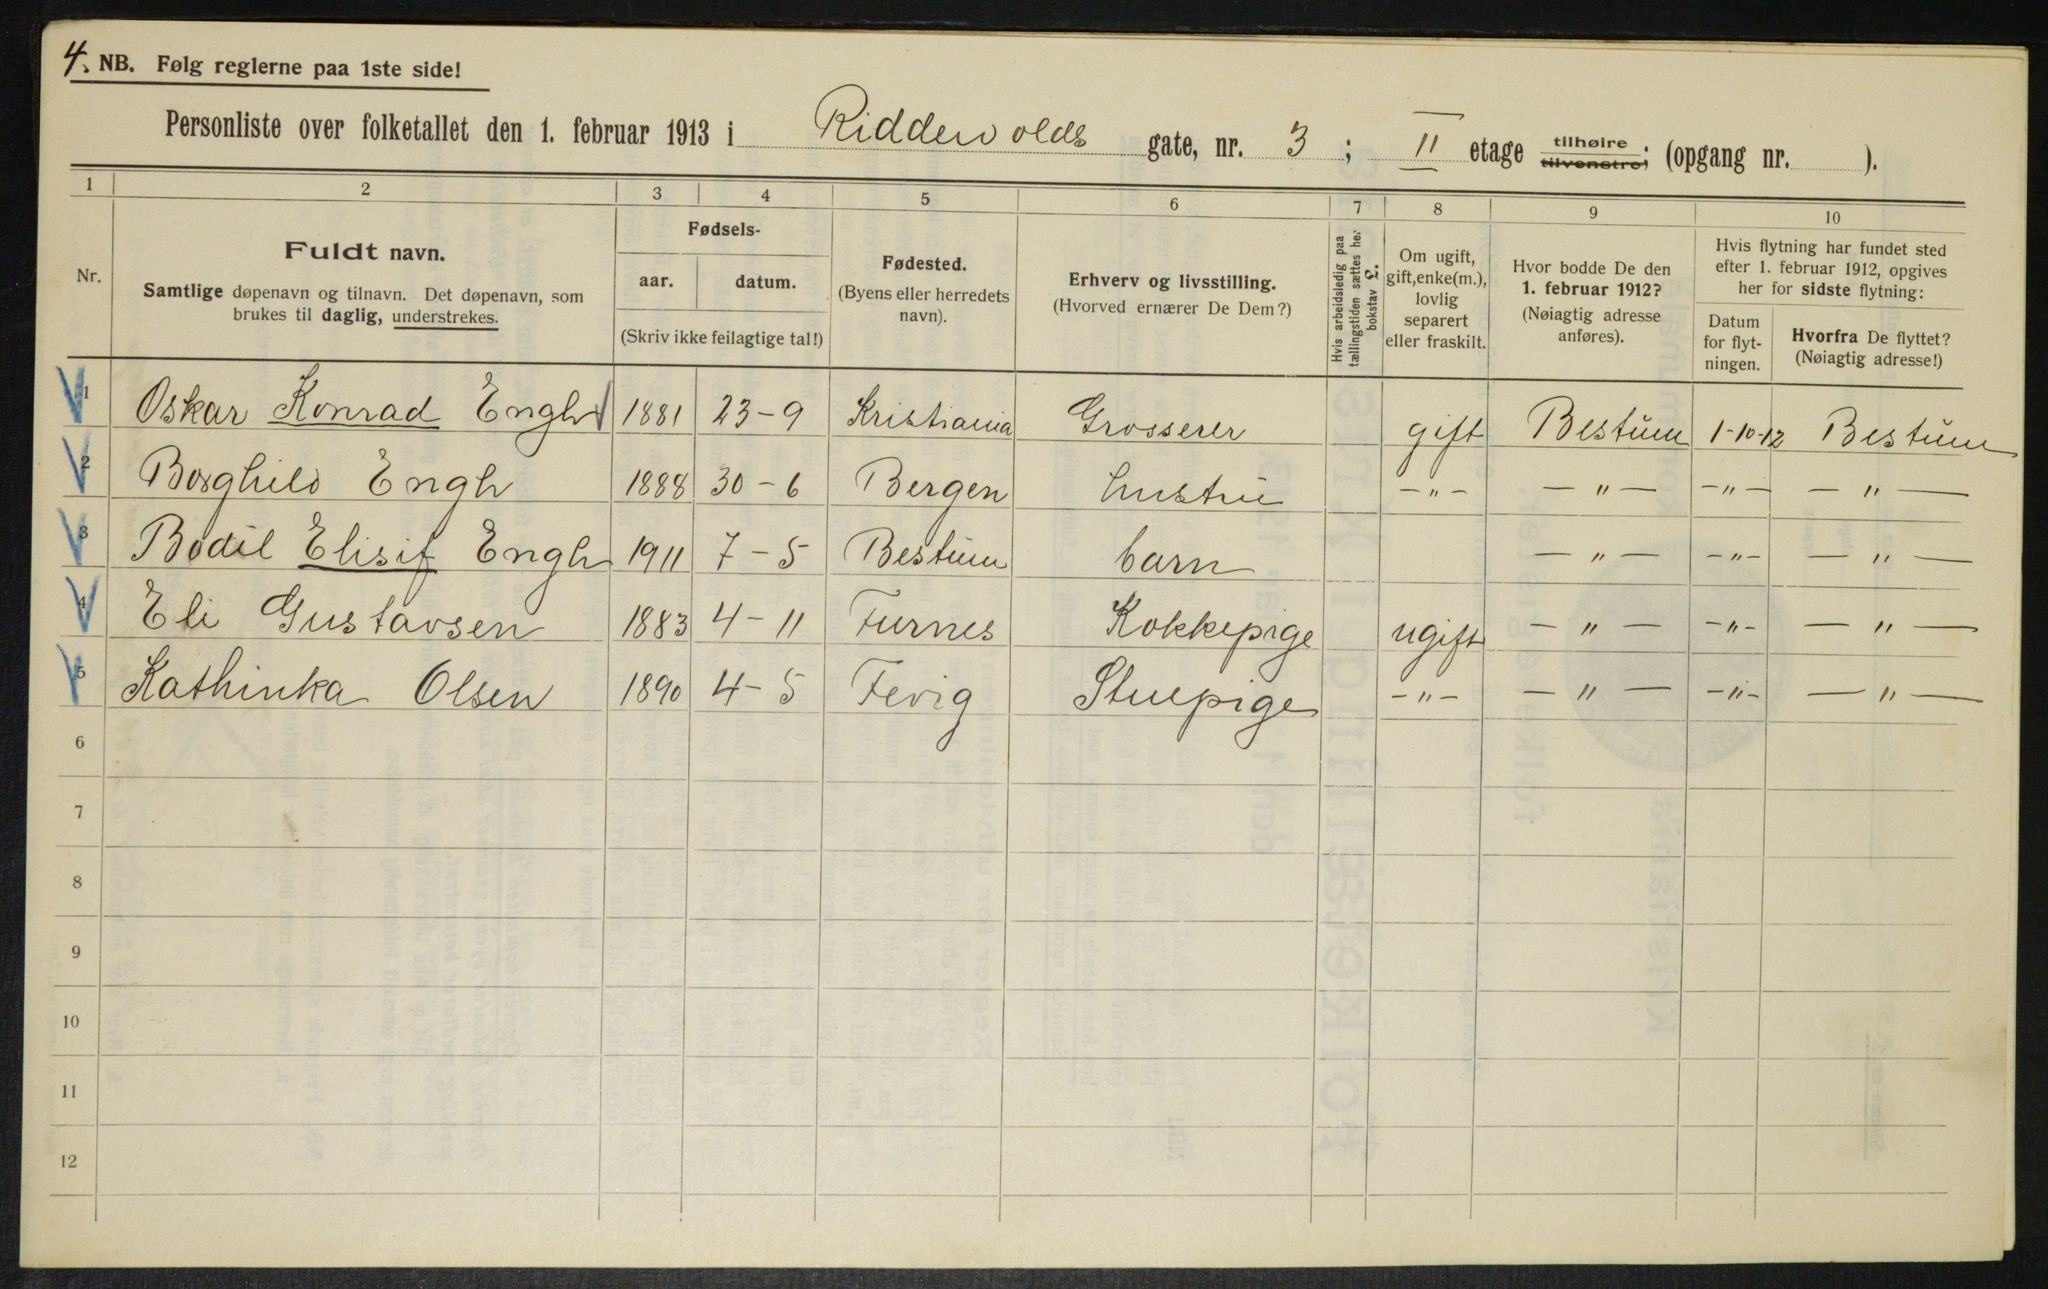 4. NB. Følg reglerne paa 1ste side!
Personliste over folketallet den 1. februar 1913 i Riddervolds gate, nr. 3; II etage tilhøire tilvenstre; (opgang nr. ).
1 2 3 4 5 6 7 8 9 10
Nr.
Fuldt navn.
Samtlige døpenavn og tilnavn. Det døpenavn, som
brukes til daglig, understrekes.
Fødsels-
aar. datum.
(Skriv ikke feilagtige tal!)
Fødested.
(Byens eller herredets
navn).
Erhverv og livsstilling.
(Hvorved ernærer De Dem?)
Hvis arbeidsledig paa
tællingstiden sættes her
bokstav L.
Om ugift,
gift, enke(m.),
lovlig
separert
eller fraskilt.
Hvor bodde De den
1. februar 1912?
(Nøiagtig adresse
anføres).
Hvis flytning har fundet sted
efter 1. februar 1912, opgives
her for sidste flytning:
Datum
for flyt-
ningen.
Hvorfra De flyttet?
(Nøiagtig adresse!)
1 Oskar Konrad Engh 1881 23-9 Kristiania Grosserer gift Bestum 1-10-12 Bestum
2 Borghild Engh 1888 30-6 Bergen hustru -"- -"- -"- -"-
3 Bodil Elisif Engh 1911 7-5 Bestum barn -"- -"- -"-
4 Eli Gustavsen 1883 4-11 Furnes Kokkepige ugift -"- -"- -"-
5 Kathinka Olsen 1890 4-5 Fevig Stuepige -"- -"- -"- -"-
6
7
8
9
10
11
12